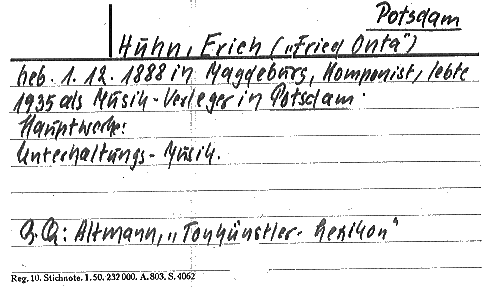 Potsdam
Huhn, Erich („Fried Onta")
geb. 1. 12. 1888 in Magdeburg, Komponist, lebte
1935 als Musik-Verleger in Potsdam.
Hauptwerke:
Unterhaltungs-Musik.
Altmann, „Tonkünstler-Lexikon"
Reg. 10. Stichnote. 1. 50. 232 000. A. 803. S. 4062